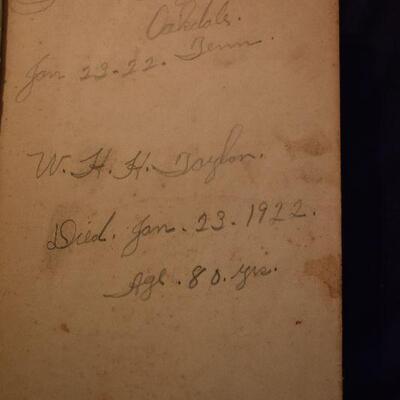 Oakdale.
Jan 23-22. Tenn.
W. H. H. Taylor.
Died. Jan. 23. 1922.
Age. 80. yrs.